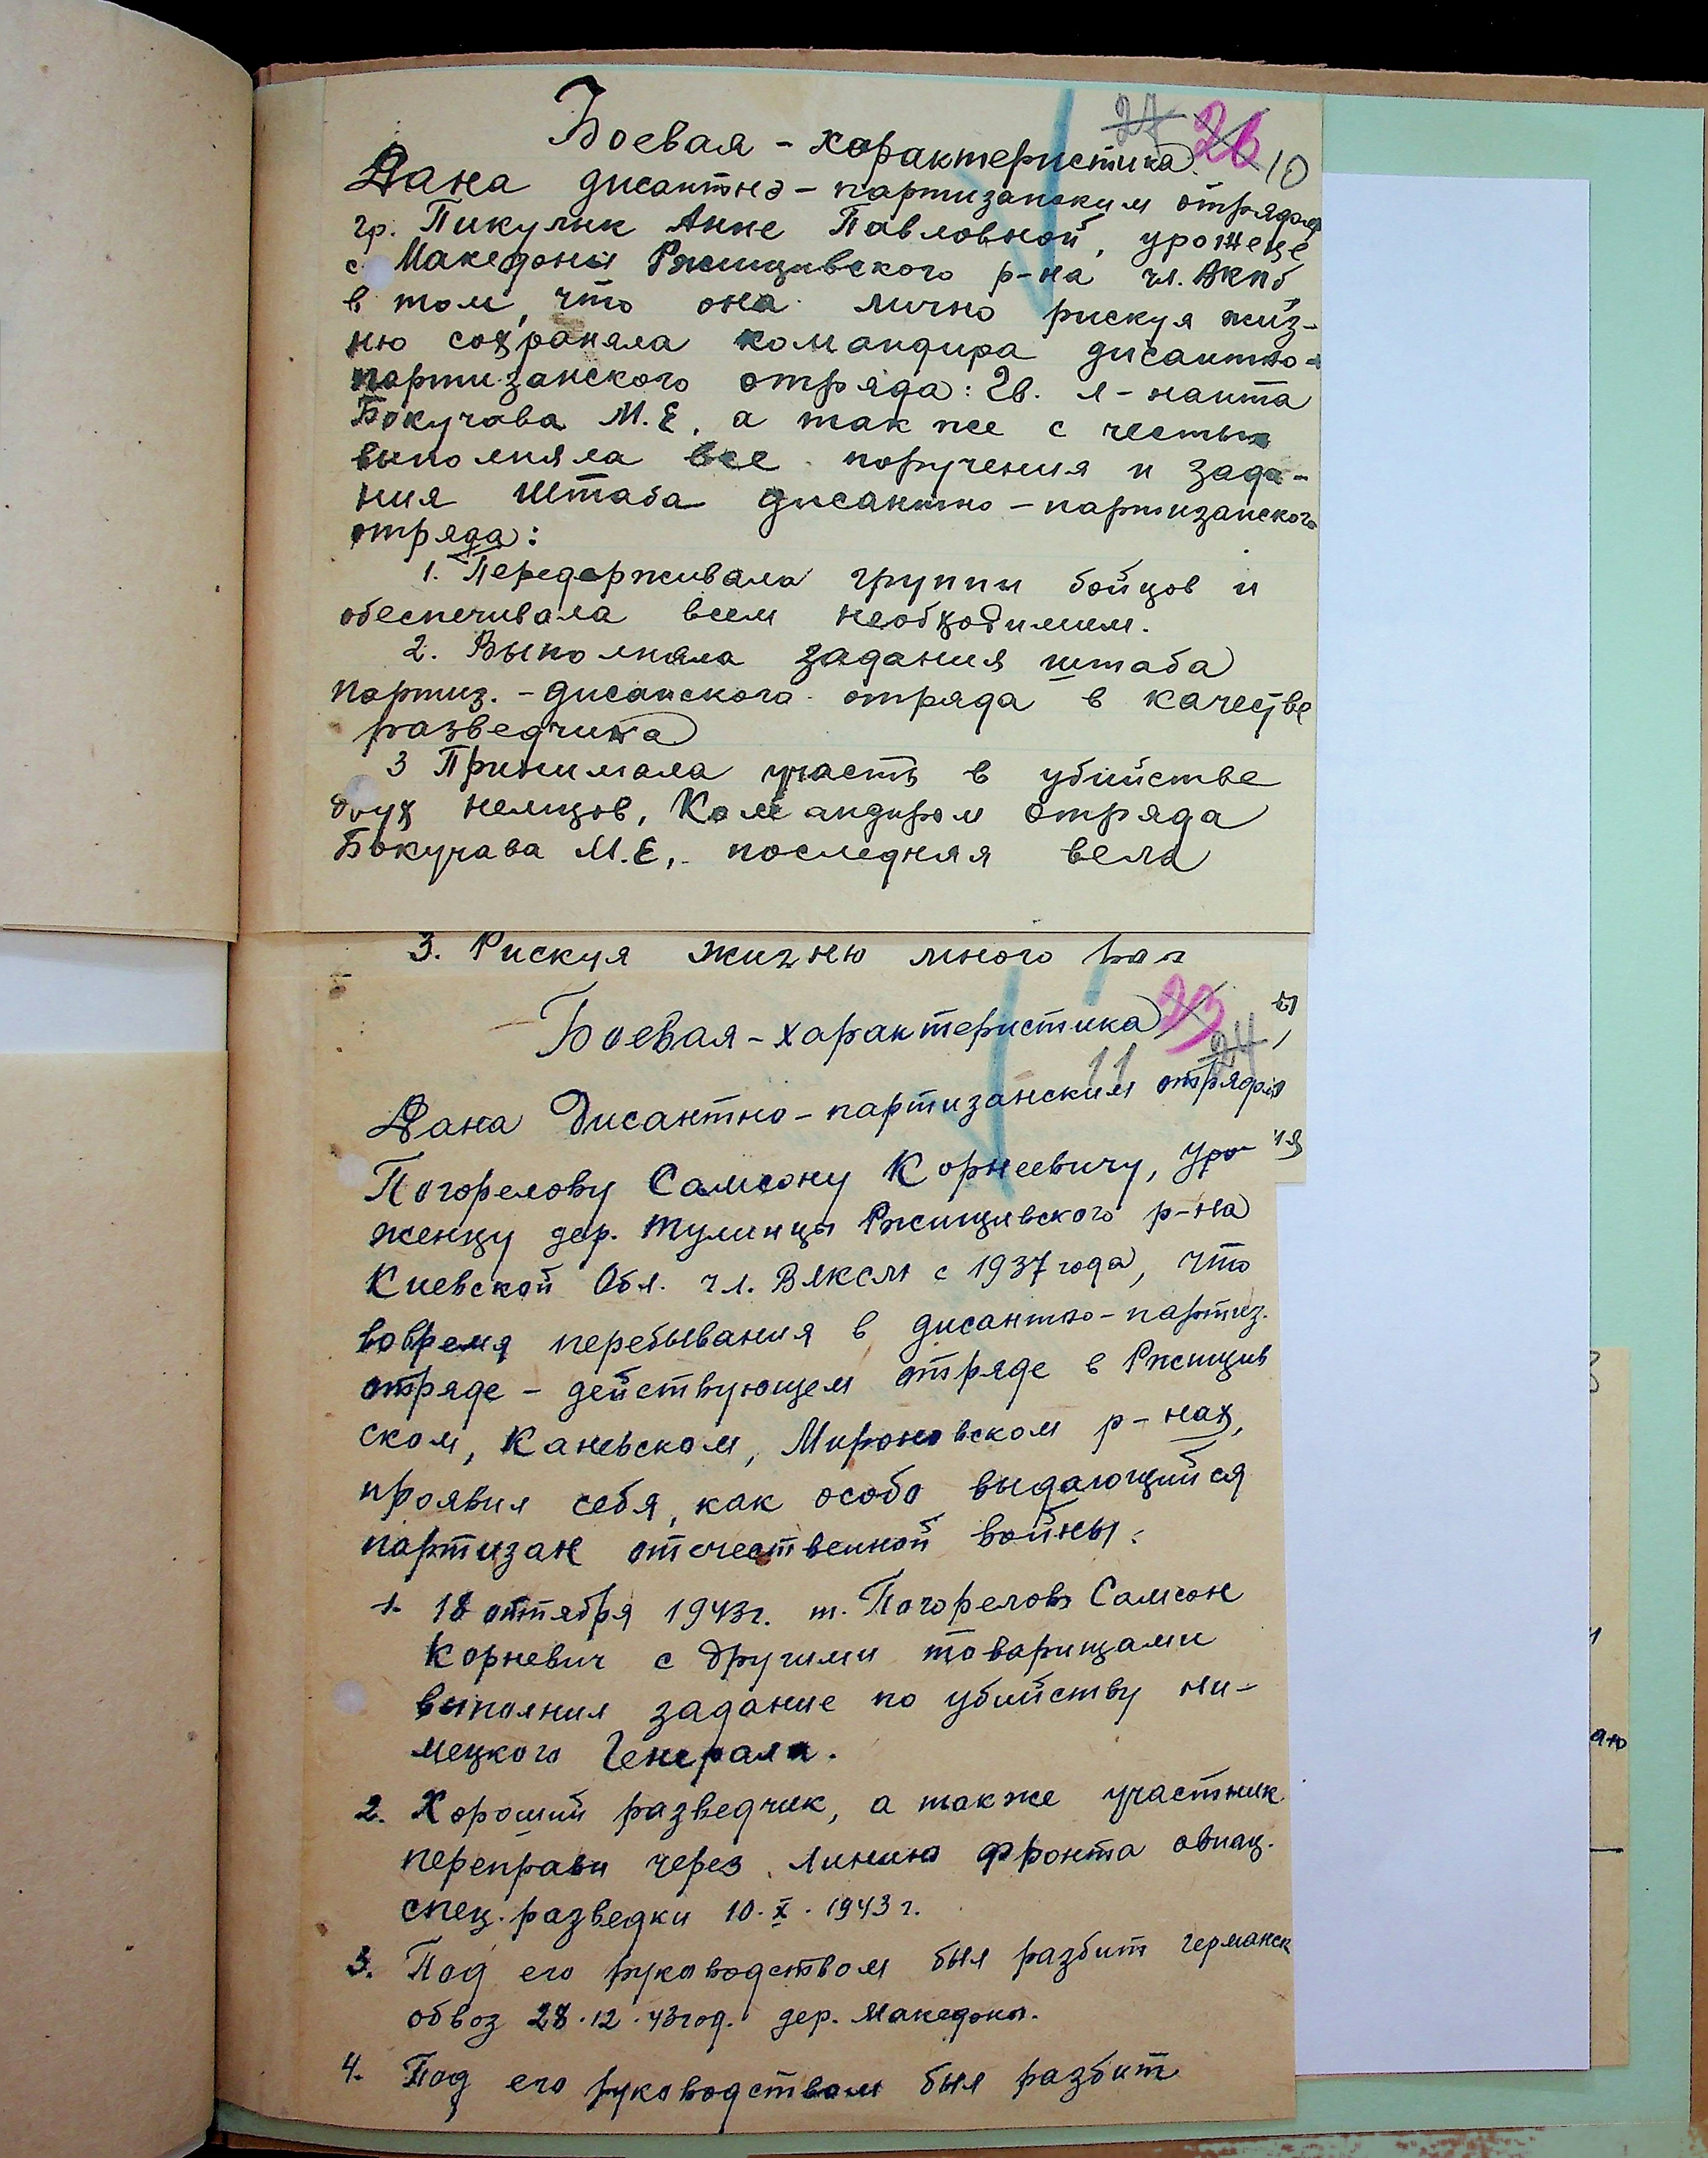 27 26 10
Боевая - характеристика
Дана дисантно - партизанским отрядом
гр. Пикулик Анне Павловной, уроженце
с Македоны Ржищивского р-на чл. ВКПб
в том, что она лично рискуя жиз-
ню сохраняла командира дисантно-
партизанского отряда: Гв. л-нанта
Бокучава М.Е, а так же с честью
выполняла все поручения и зада-
ния Штаба дисантно - партизанского
отряда:
1. Передерживала группы бойцов и
обеспечивала всем необходимим.
2. Выполняла задания штаба
партиз. - дисанского отряда в качестве
разведчика
3 Принимала участь в убийстве
двух немцов, Командиром отряда
Бокучава М.Е,. последняя вела
3. Рискуя жизню много
23
Боевая - характеристика
24
11
Дана Дисантно - партизанским отрядом
Погорелову Самсону Корнеевичу, уро-
женцу дер. Тулинцы Ржищивского р-на
Киевской Обл. чл. ВЛКСМ с 1937 года, что
вовремя перебывания в дисантно-партиз.
отряде - действующем отряде в Ржищив
ском, Каневском, Мироновском р-нах,
проявил себя, как особо выдающийся
партизан отечественной войны:
1. 18 октября 1943г. т. Погорелов Самсон
Корневич с другими товарищами
выполнил задание по убийству ни-
мецкого Генерала.
2. Хороший разведчик, а также участник
переправы через линию фронта авиац.
спец. разведки 10.X.1943 г.
3. Под его руководством был разбит германск
обвоз 28.12.43 год. дер. Македоны.
4. Под его руководством был разбит